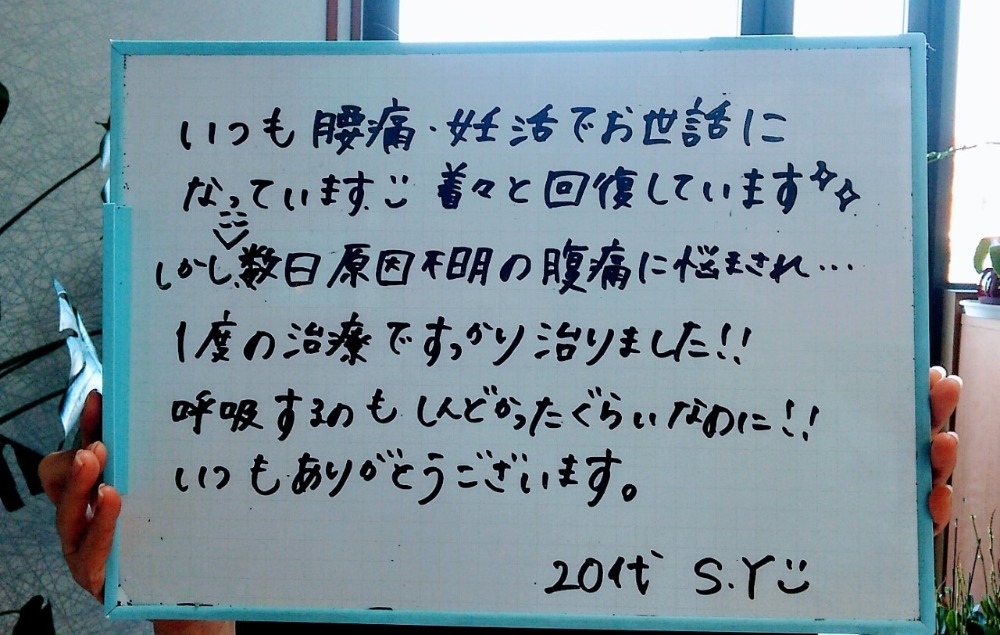 いつも腰痛・妊活でお世話に
なっています。☺ 着々と回復しています✧✧
しかし、ここ数日原因不明の腹痛に悩まされ…
1度の治療ですっかり治りました!!
呼吸するのもしんどかったぐらいなのに!!
いつもありがとうございます。
20代 S.Y☺